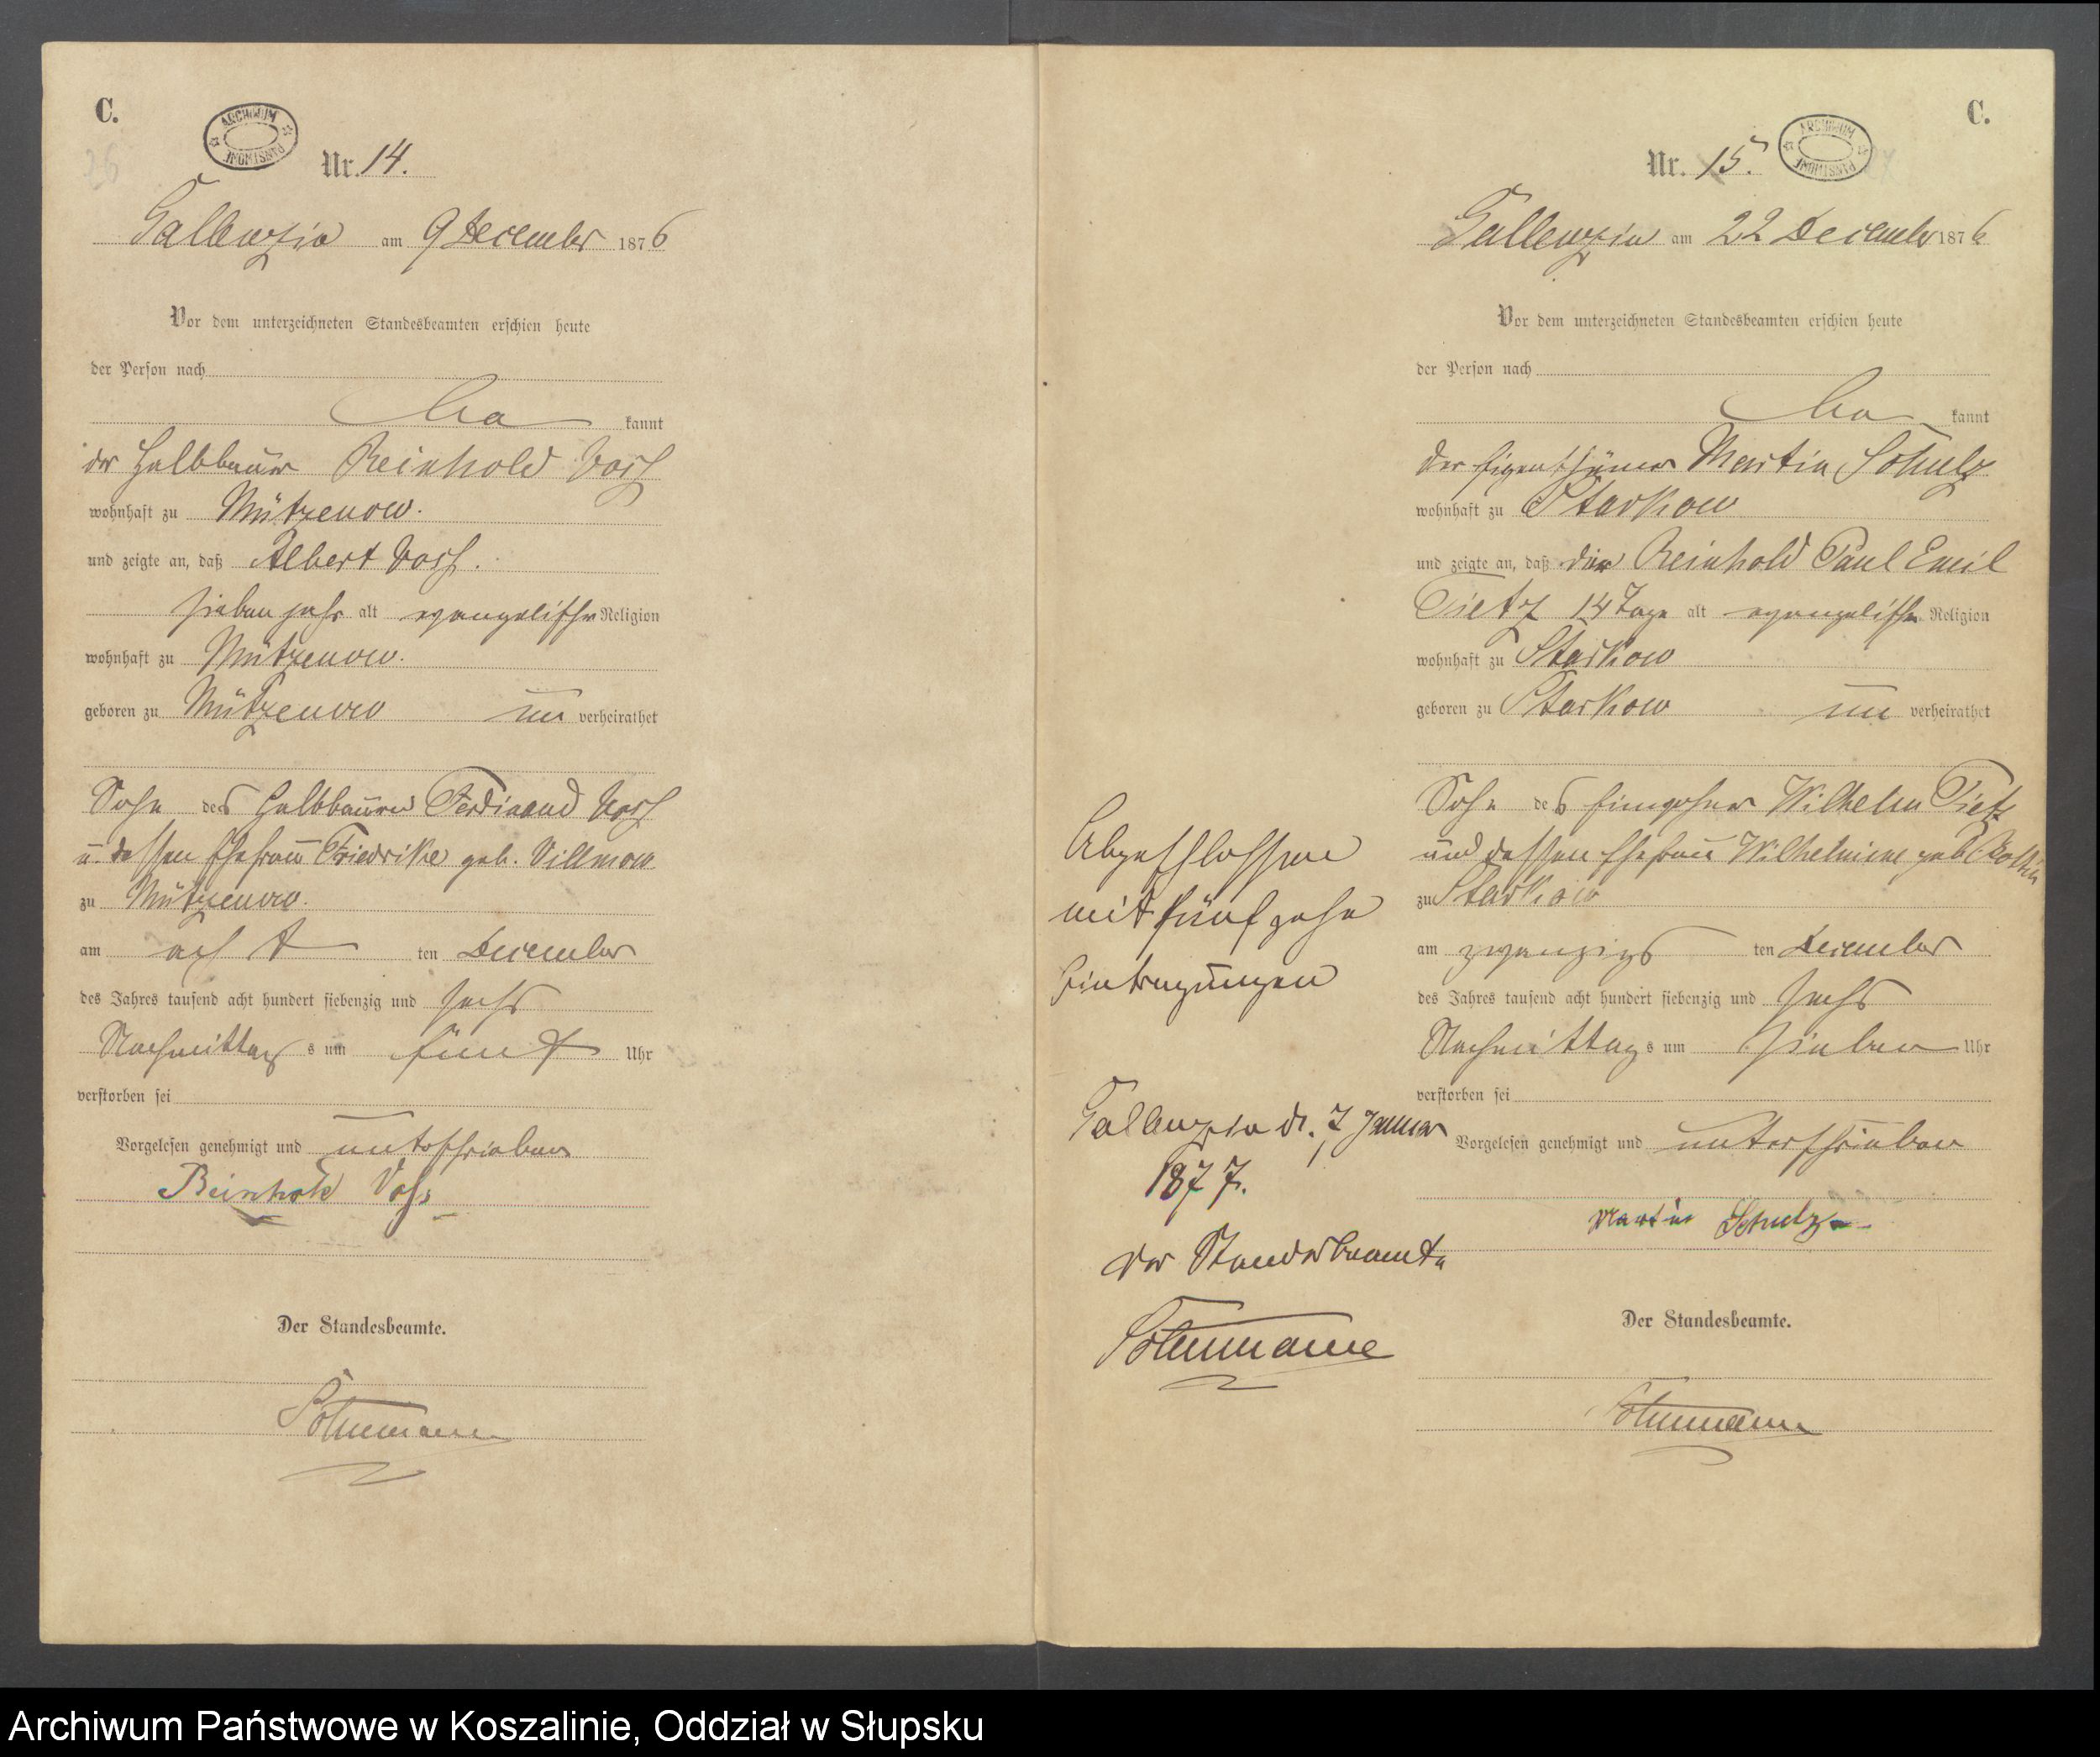 C.
ARCHIWUM PAŃSTWOWE
Nr. 14.
Gallenzin am 9 December 1876
Vor dem unterzeichneten Standesbeamten erschien heute
der Person nach
be kannt
der Halbbauer Reinhold Voss
wohnhaft zu Mützenow.
und zeigte an, daß Albert Voss.
sieben Jahr alt evangelischer Religion
wohnhaft zu Mützenow.
geboren zu Mützenow un verheirathet
Sohn des Halbbauern Ferdinand Voss
u. dessen Ehefrau Friedrike geb. Villmow
zu Mützenow.
am acht ten December
des Jahres tausend acht hundert siebenzig und sechs
Nachmittag s um fünf Uhr
verstorben sei
Vorgelesen genehmigt und unterschrieben
Reinhold Voss
Der Standesbeamte.
C.
Nr. 15.
ARCHIWUM PAŃSTWOWE
Gallenzin am 22 December 1876
Vor dem unterzeichneten Standesbeamten erschien heute
der Person nach
be kannt
der Eigenthümer Martin Schulz
wohnhaft zu Starkow
und zeigte an, daß der Reinhold Paul Emil
Tietz 14 Tage alt evangelischer Religion
wohnhaft zu Starkow
geboren zu Starkow un verheirathet
Sohn des Wilhelm Tietz
und dessen Ehefrau Wilhelmine geb.
zu Starkow
am zwanzigs ten December
des Jahres tausend acht hundert siebenzig und sechs
Nachmittag s um sieben Uhr
verstorben sei
Vorgelesen genehmigt und unterschrieben
Martin Schulz
Der Standesbeamte.
Abgeschlossen
mit fünfzehn
Eintragungen
Gallenzin d. 7 Januar
1877.
Der Standesbeamte
Archiwum Państwowe w Koszalinie, Oddział w Słupsku